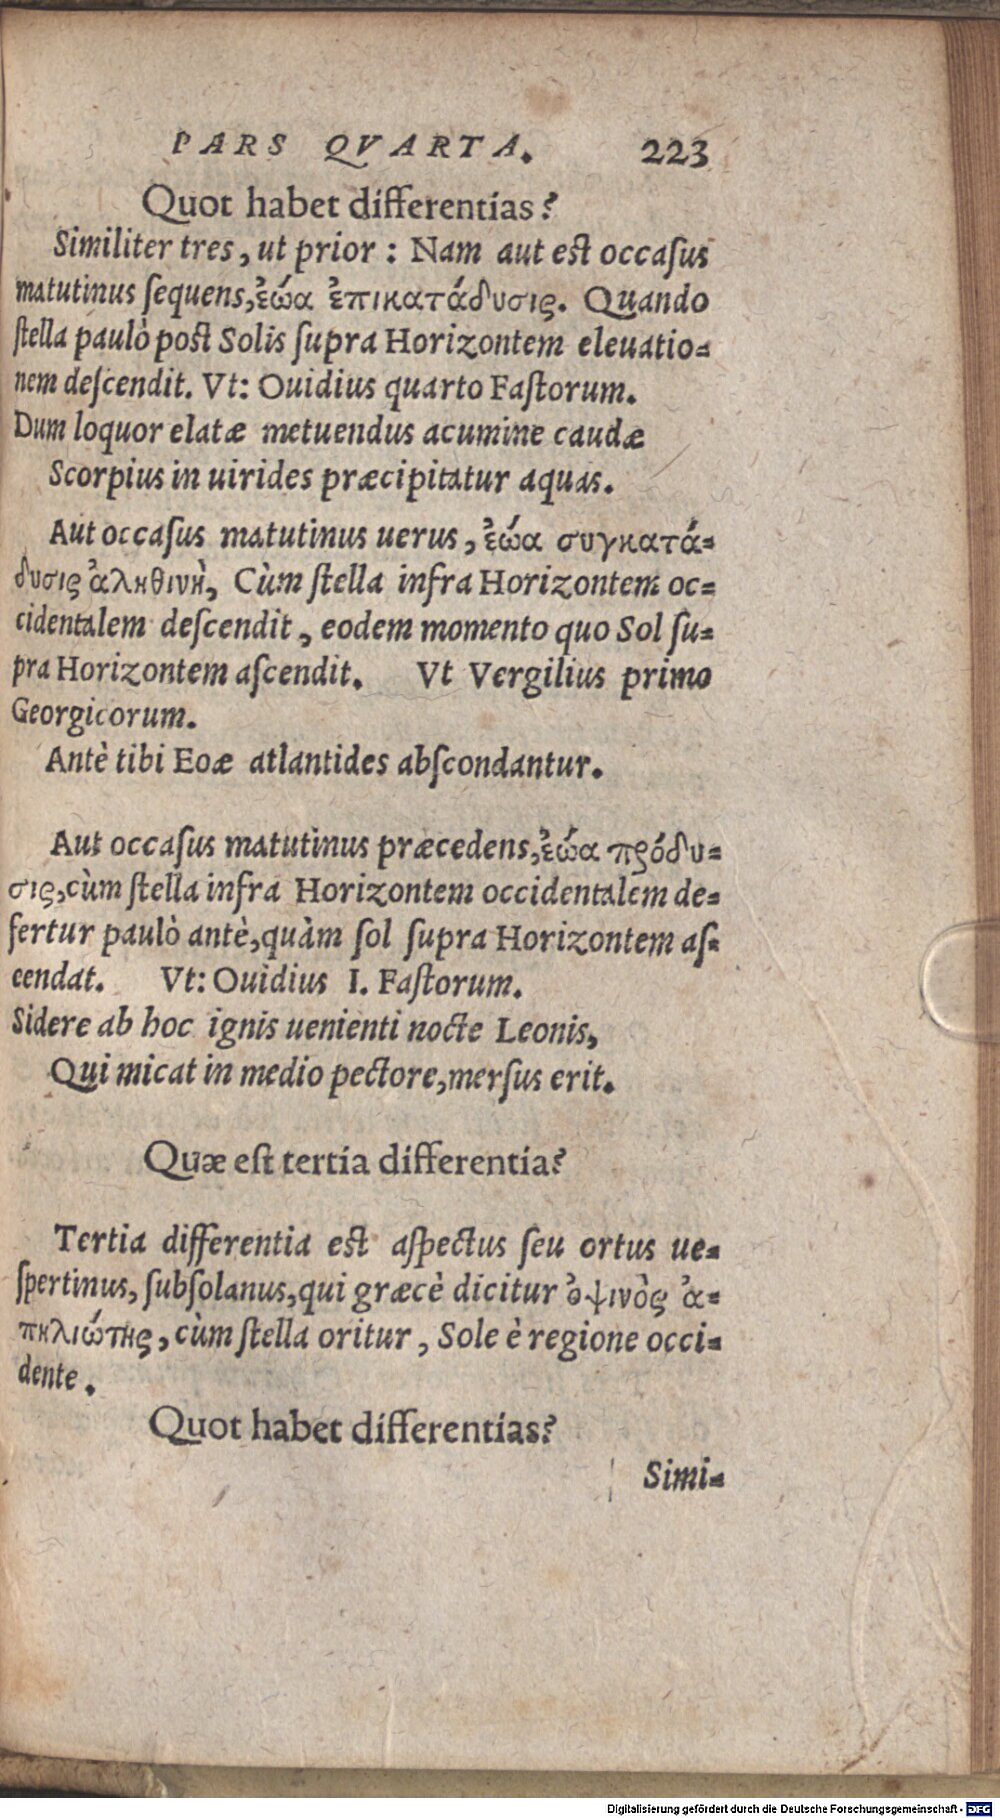 PARS QVARTA. 223
Quot habet differentias?
Similiter tres, ut prior : Nam aut est occaſus
matutinus ſequens, ἑώα ἐπικατάδυσις. Quando
ſtella paulò post Solis ſupra Horizontem eleuatio-
nem deſcendit. Vt: Ouidius quarto Faſtorum.
Dum loquor elatæ metuendus acumine caudæ
Scorpius in uirides præcipitatur aquas.
Aut occaſus matutinus uerus, ἑώα συγκατά-
δυσις ἀληθινὴ, Cùm ſtella infra Horizontem oc-
cidentalem deſcendit, eodem momento quo Sol ſu-
pra Horizontem aſcendit. Vt Vergilius primo
Georgicorum.
Antè tibi Eoæ atlantides abſcondantur.
Aut occaſus matutinus præcedens, ἑώα πρόδυ-
σις, cùm ſtella infra Horizontem occidentalem de-
fertur paulò antè, quàm ſol ſupra Horizontem aſ-
cendat. Vt: Ouidius I. Faſtorum.
Sidere ab hoc ignis uenienti nocte Leonis,
Qui micat in medio pectore, merſus erit.
Quæ est tertia differentia?
Tertia differentia est aſpectus ſeu ortus ue-
ſpertinus, ſubſolanus, qui græcè dicitur ὀψινὸς ἀ-
πηλιώτης, cùm ſtella oritur, Sole è regione occi-
dente.
Quot habet differentias?
Simi-
Digitalisierung gefördert durch die Deutsche Forschungsgemeinschaft - DFG